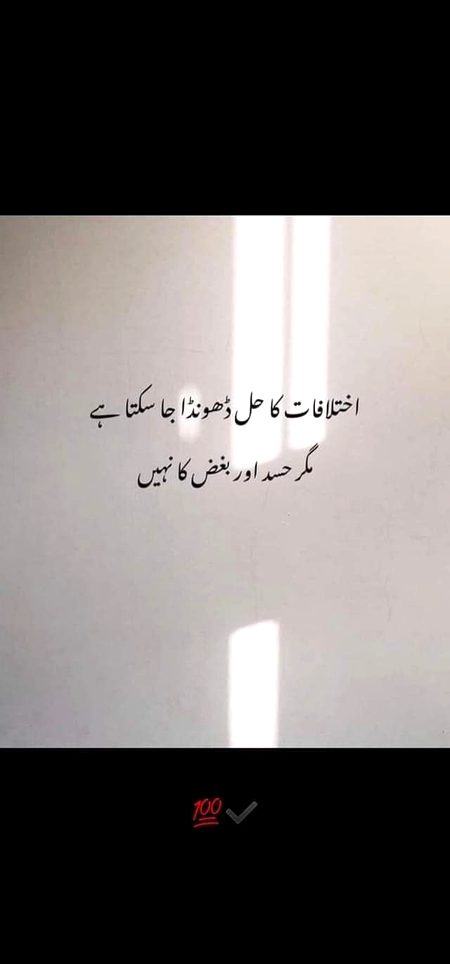 اختلافات کا حل ڈھونڈا جا سکتا ہے
مگر حسد اور بغض کا نہیں
💯✔